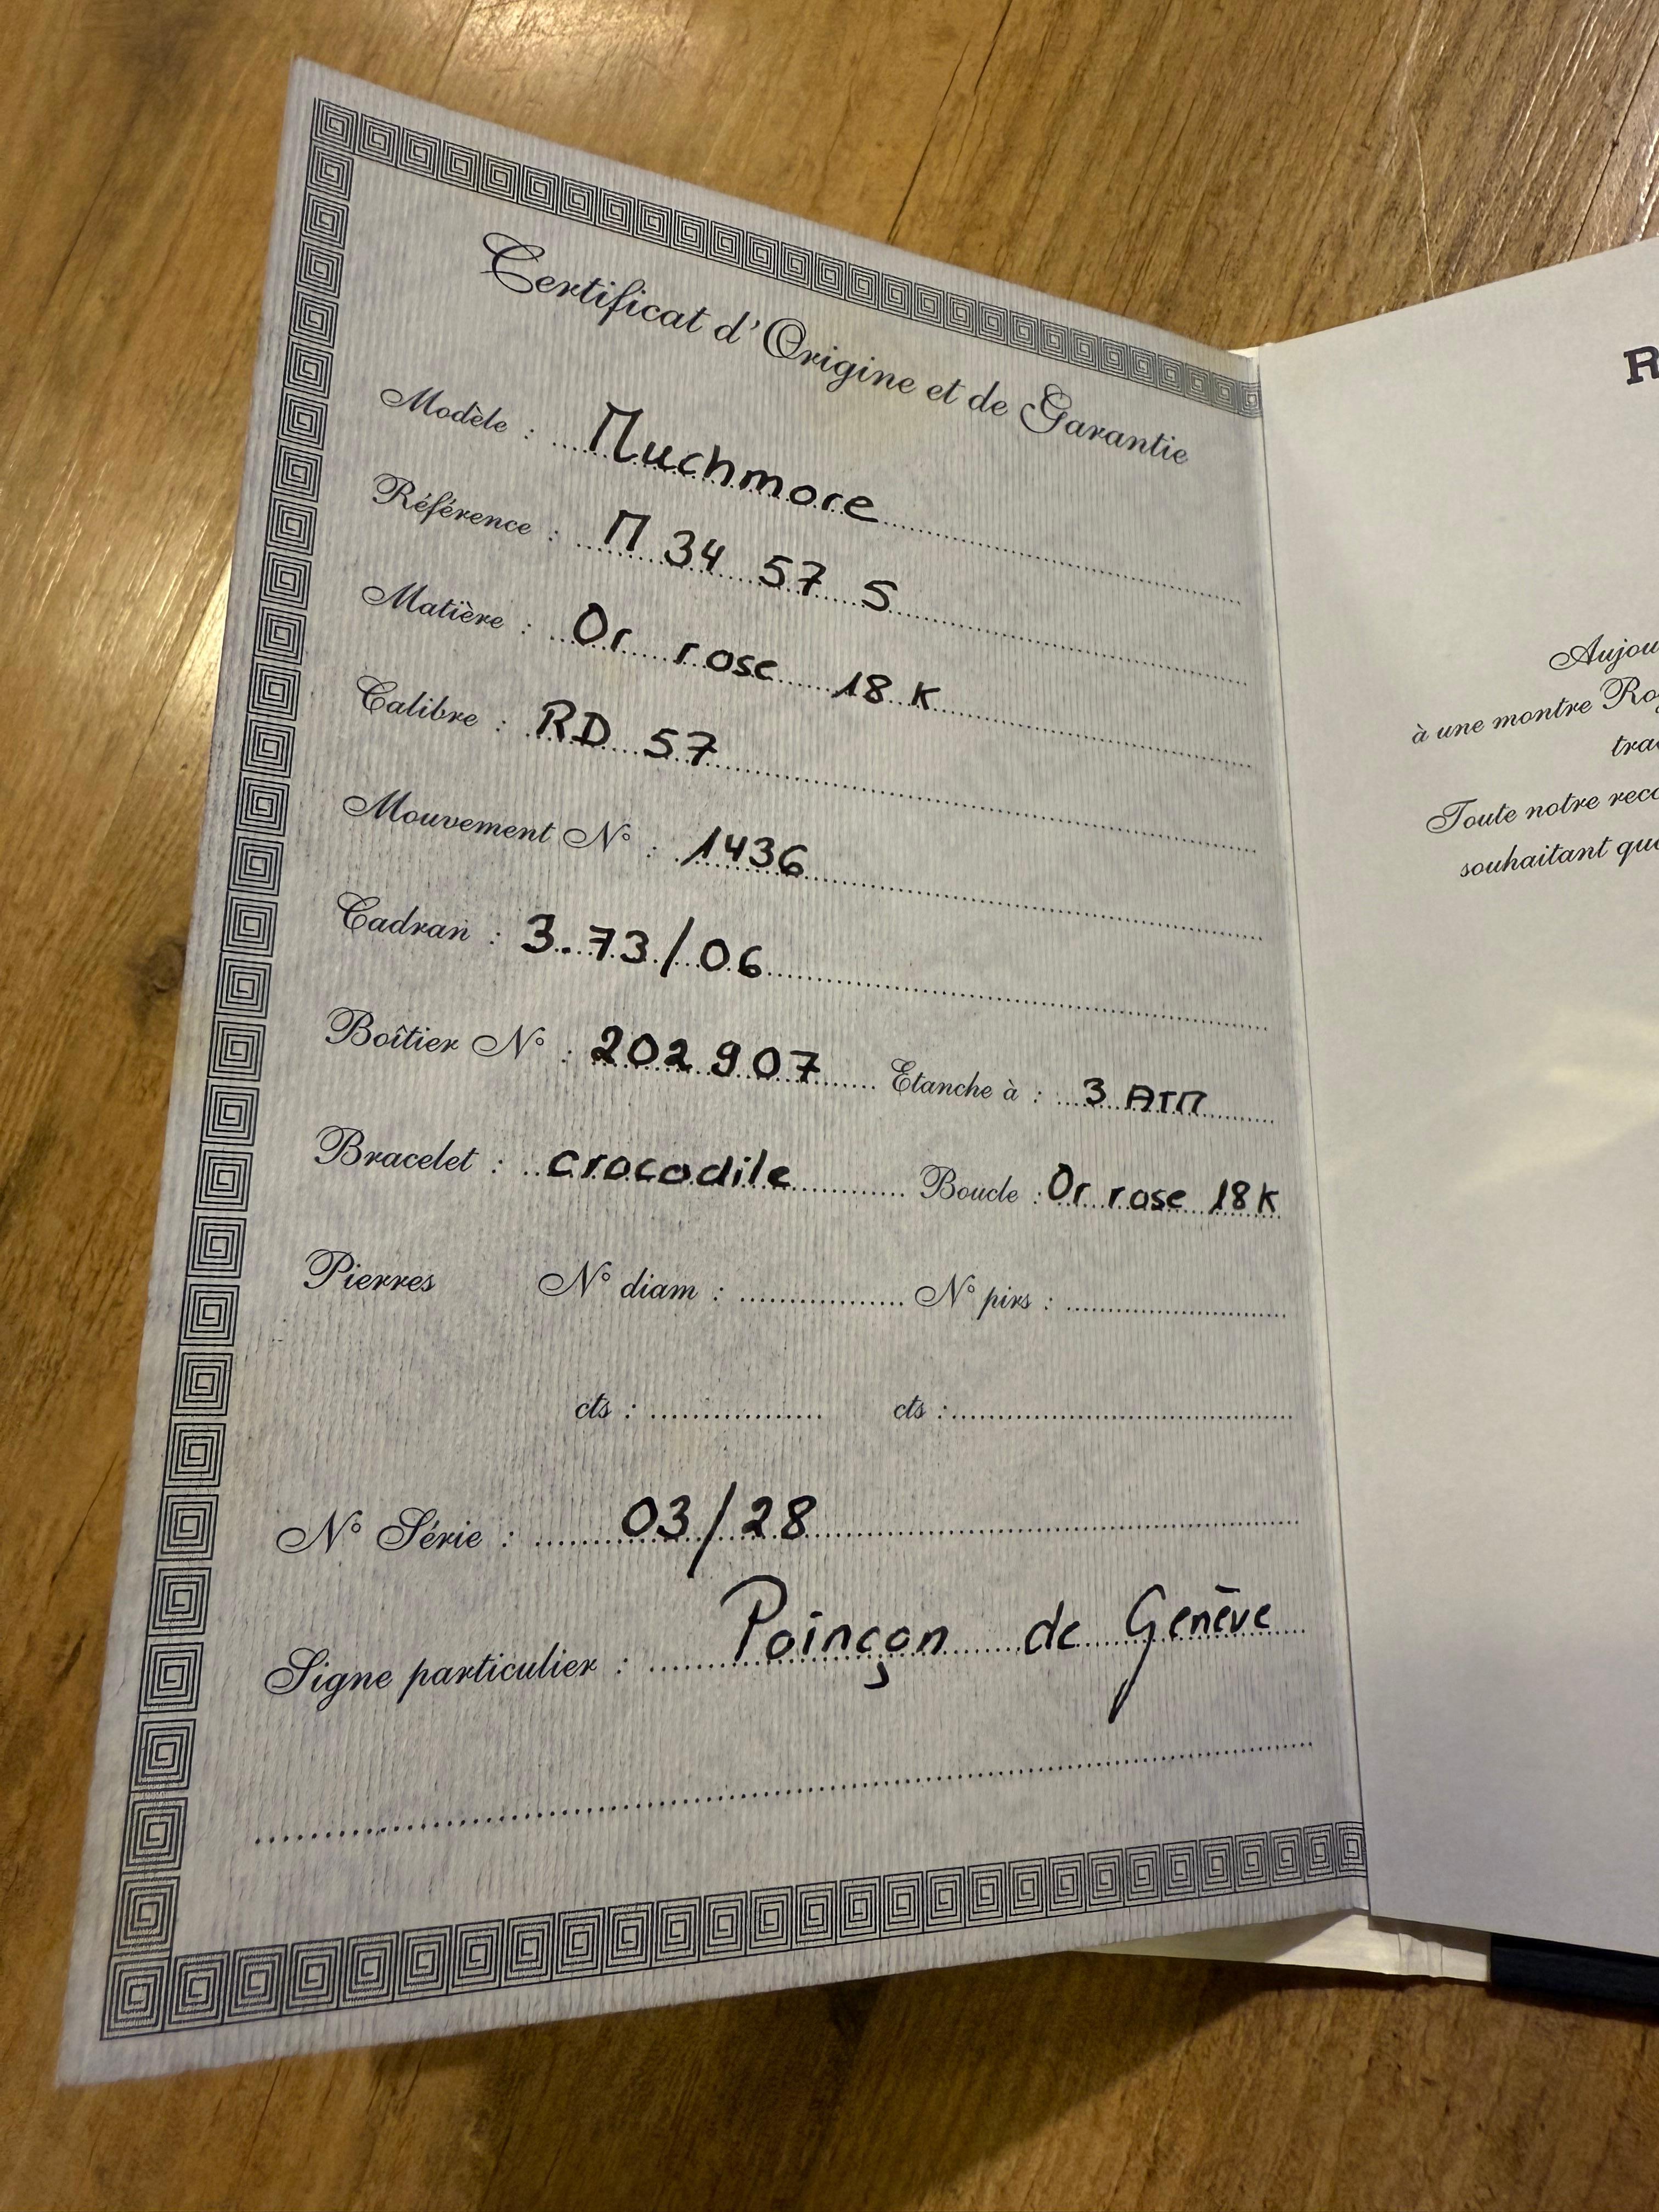 Certificat d'Origine et de Garantie
Modèle : Muchmore
Référence : M 34 57 5
Matière : Or rose 18 K
Calibre : RD 57
Mouvement N° : 1436
Cadran : 3.73/06
Boîtier N° : 202 907 Etanche à : 3 ATM
Bracelet : crocodile Boucle : Or rose 18 K
Pierres N° diam : N° pirs :
cts : cts :
N° Série : 03/28
Signe particulier : Poinçon de Genève
R
à une montre
Toute notre
souhaitant